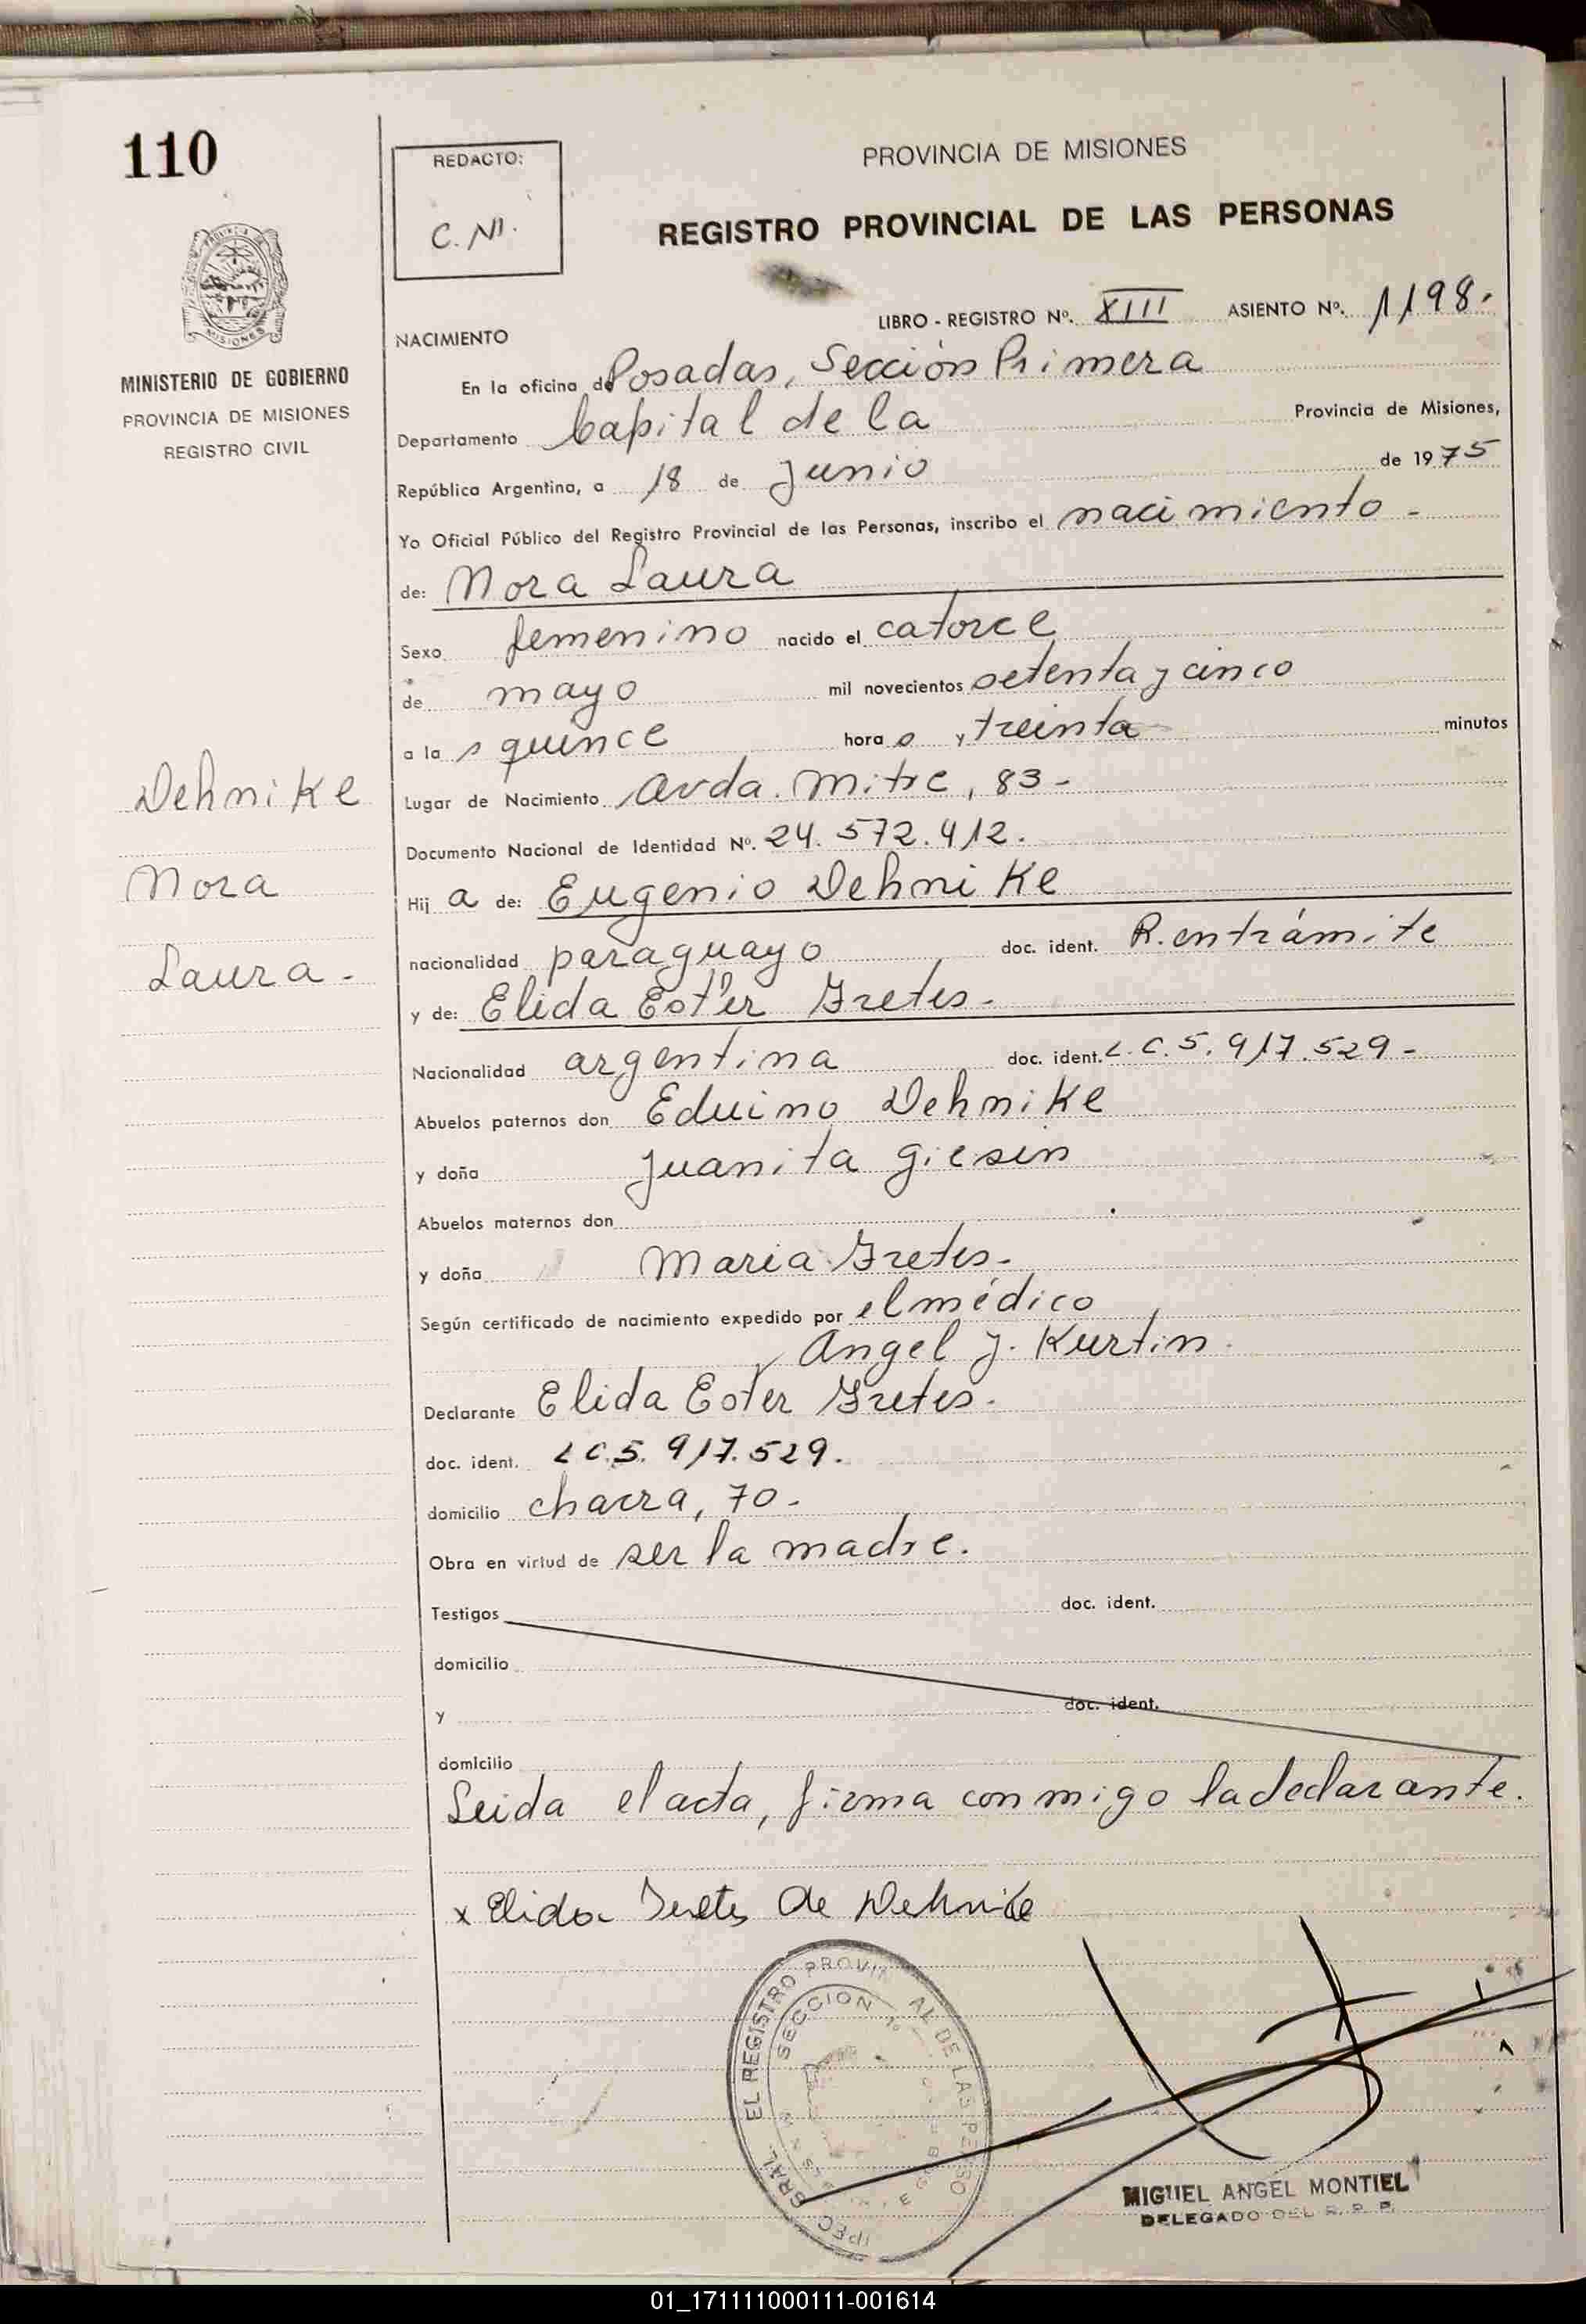 110
REDACTO:
C. NI.
PROVINCIA DE MISIONES
REGISTRO PROVINCIAL DE LAS PERSONAS
LIBRO - REGISTRO Nº. XIII ASIENTO Nº. 1198.
MINISTERIO DE GOBIERNO
PROVINCIA DE MISIONES
REGISTRO CIVIL
NACIMIENTO
En la oficina de Posadas, Sección Primera
Departamento Capital de la Provincia de Misiones,
República Argentina, a 18 de Junio de 1975
Yo Oficial Público del Registro Provincial de las Personas, inscribo el nacimiento -
de: Nora Laura
Sexo femenino nacido el catorce
de mayo mil novecientos setenta y cinco
a la s quince hora s y treinta minutos
Dehnike
Nora
Laura -
Lugar de Nacimiento Avda. Mitre, 83 -
Documento Nacional de Identidad Nº. 24.572.412.
Hij a de: Eugenio Dehnike
nacionalidad paraguayo doc. ident. R. en trámite
y de: Elida Ester -
Nacionalidad argentina doc. ident. L.C. 5.917.529 -
Abuelos paternos don Eduino Dehnike
y doña Juanita Giesin
Abuelos maternos don
y doña Maria
Según certificado de nacimiento expedido por el médico
Angel J. Kurtin.
Declarante Elida Ester
doc. ident. L C. 5. 917.529.
domicilio chacra, 70 -
Obra en virtud de ser la madre.
Testigos doc. ident.
domicilio
y doc. ident.
domicilio
Leida el acta, firma conmigo la declarante.
x Elida de Dehnike
EL REGISTRO PROVI AL DE LAS PERSO
SECCION 1º
MIGUEL ANGEL MONTIEL
DELEGADO DEL R. P. P.
01_171111000111-001614